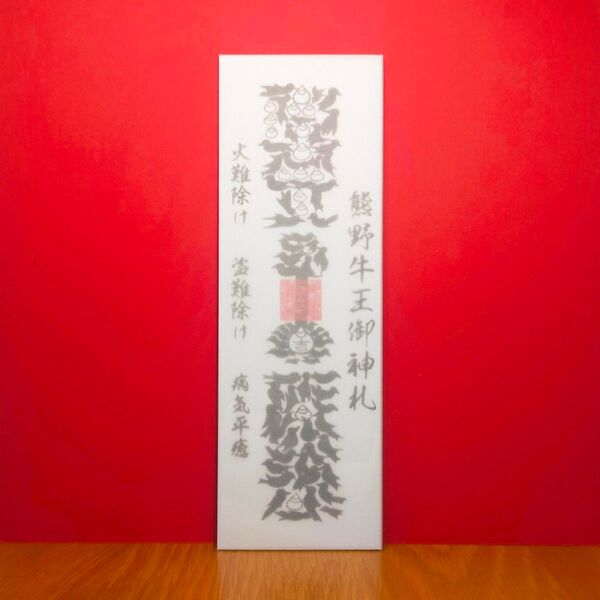 熊野牛王御神札
火難除け　盗難除け　病気平癒